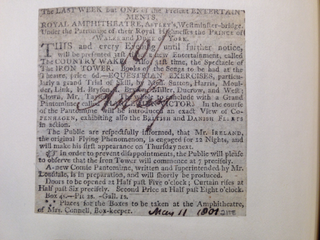 The LAST WEEK but ONE of the present ENTERTAIN-
MENTS.
ROYAL AMPHITHEATRE, ASTLEY's, Westminster-bridge.
Under the Patronage of their Royal Highnesses the PRINCE of
WALES and DUKE of YORK.
THIS and every Evening, until further notice,
will be performed an entire new Entertainment, called
The COUNTRY WAKE. time, the Spectacle of
The IRON TOWER. Books of the Songs to be had at the
Theatre, price 6d.—EQUESTRIAN EXERCISES, particu-
larly a grand Trial of Skill, by Mess. Sutton, Harris, Moul-
der, Link, H. Miller, Ducrow, and West.
Clown, Mr. To conclude with a Grand
Pantomime In the course
of the Pantomime will be introduced an exact View of Co-
PENHAGEN, exhibiting also the BRITISH and DANISH FLEETS
in ACTION.
The Public are respectfully informed, that Mr. IRELAND,
the original Flying Phænomenon, is engaged for 12 Nights, and
will make his first appearance on Thursday next.
in order to prevent disappointments, the Public will please
to observe that the Iron Tower will commence at 7 precisely.
A new Comic Pantomime, written and superintended by Mr.
is in preparation, and will shortly be produced.
Doors to be opened at Half past Five o'clock; Curtain rises at
Half past Six precisely. Second Price at Half past Eight o'clock.
Box 4s.—Pit 2s.—Gall. 1s.
Places for the Boxes to be taken at the Amphitheatre,
of Mrs. Connell, Box-keeper.
Astley
May 11 1801